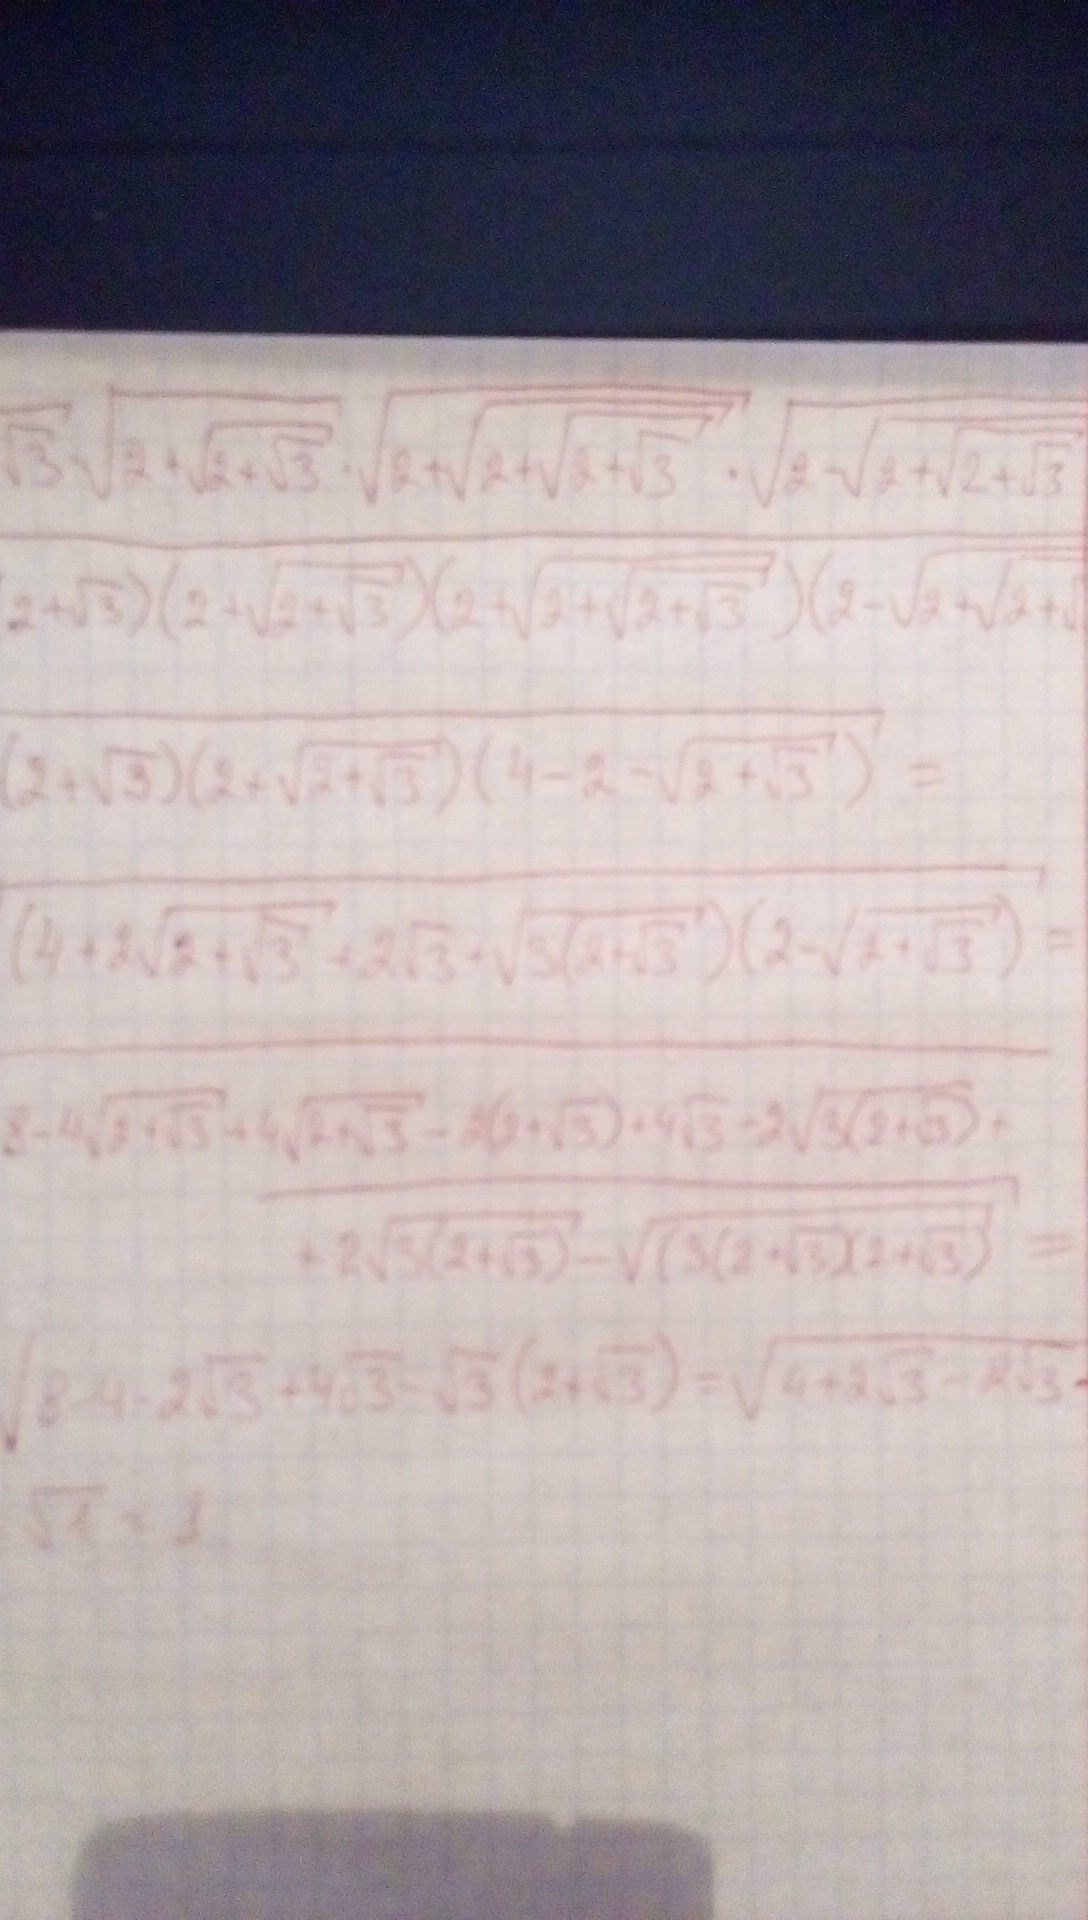 √3 · √(2+√(2+√3)) · √(2+√(2+√(2+√3))) · √(2-√(2+√(2+√3
2+√3)(2+√(2+√3))(2+√(2+√(2+√3)))(2-√(2+√(2+√
(2+√3)(2+√(2+√3))(4-2-√(2+√3)) =
(4+2√(2+√3)+2√3+√(3(2+√3))(2-√(2+√3)) =
8-4√(2+√3)+4√(2+√3)-2(2+√3)+4√3-2√(3(2+√3))+
+2√(3(2+√3))-√((3(2+√3)(2+√3)) =
√(8-4-2√3+4√3-√3(2+√3)) = √(4+2√3-2√3-
√1 = 1